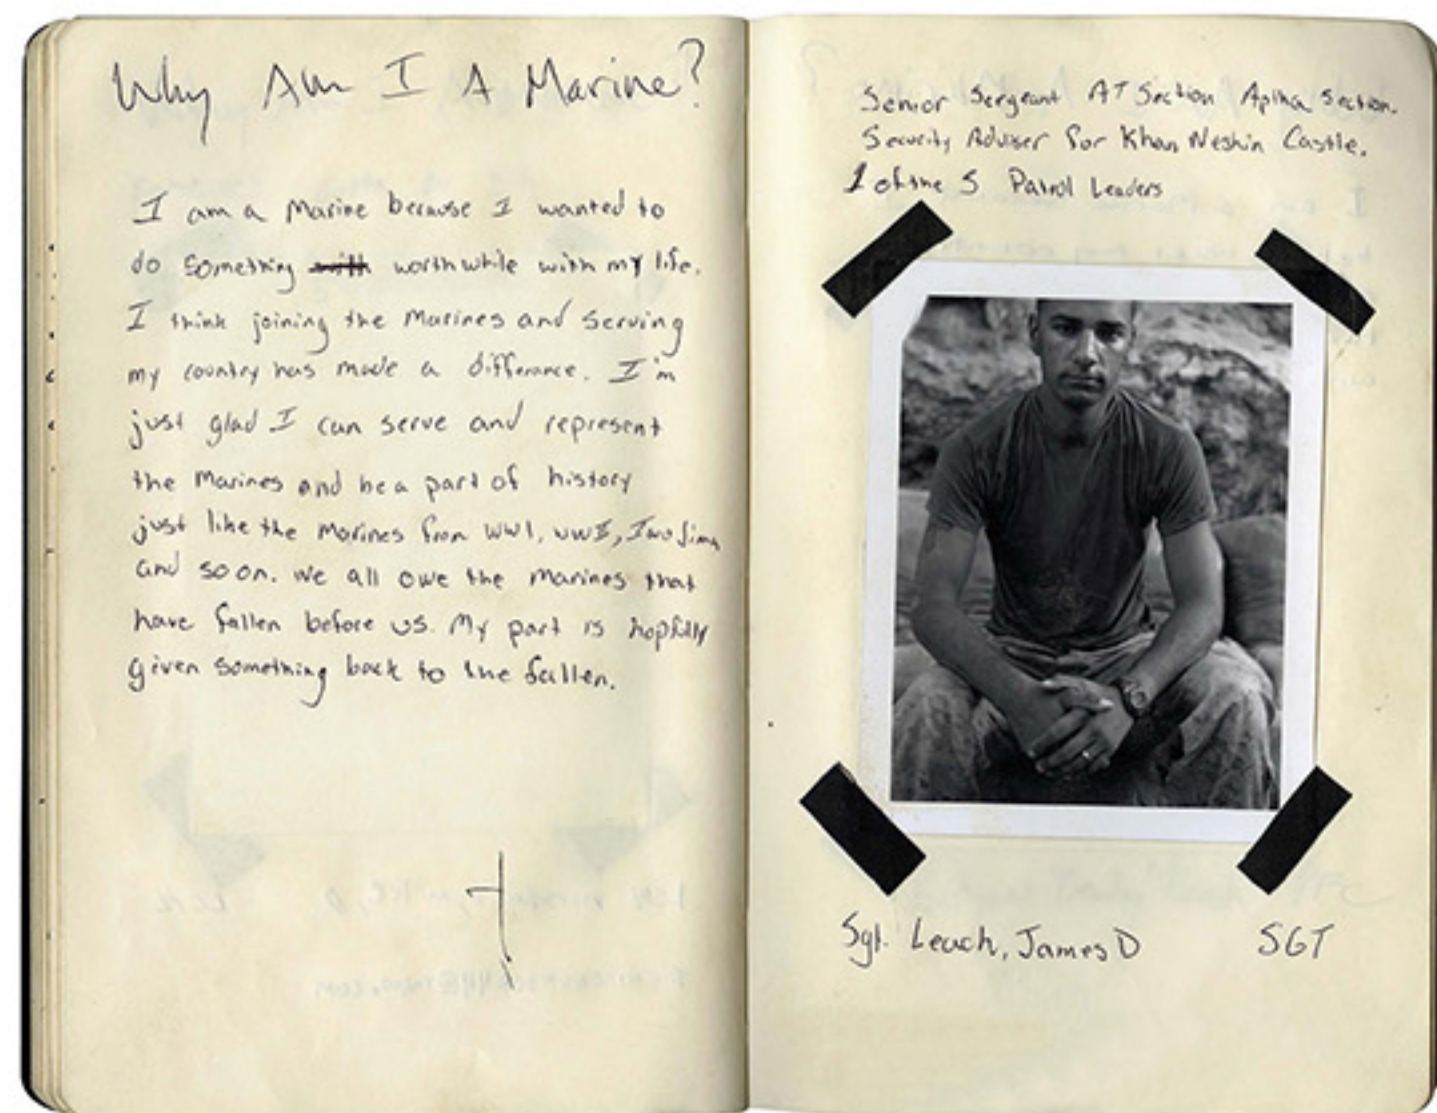 Why Am I A Marine?
I am a Marine because I wanted to
do something with worthwhile with my life.
I think joining the Marines and serving
my country has made a difference. I'm
just glad I can serve and represent
the Marines and be a part of history
just like the Marines from WW1, WWII, Iwo Jima
and so on. We all owe the Marines that
have fallen before us. My part is hopfully
given something back to the fallen.
Senior Sergeant AT Section Aplha Section.
Security Adviser for Khan Neshin Castle.
1 of the 5 Patrol Leaders
Sgt. Leach, James D SGT